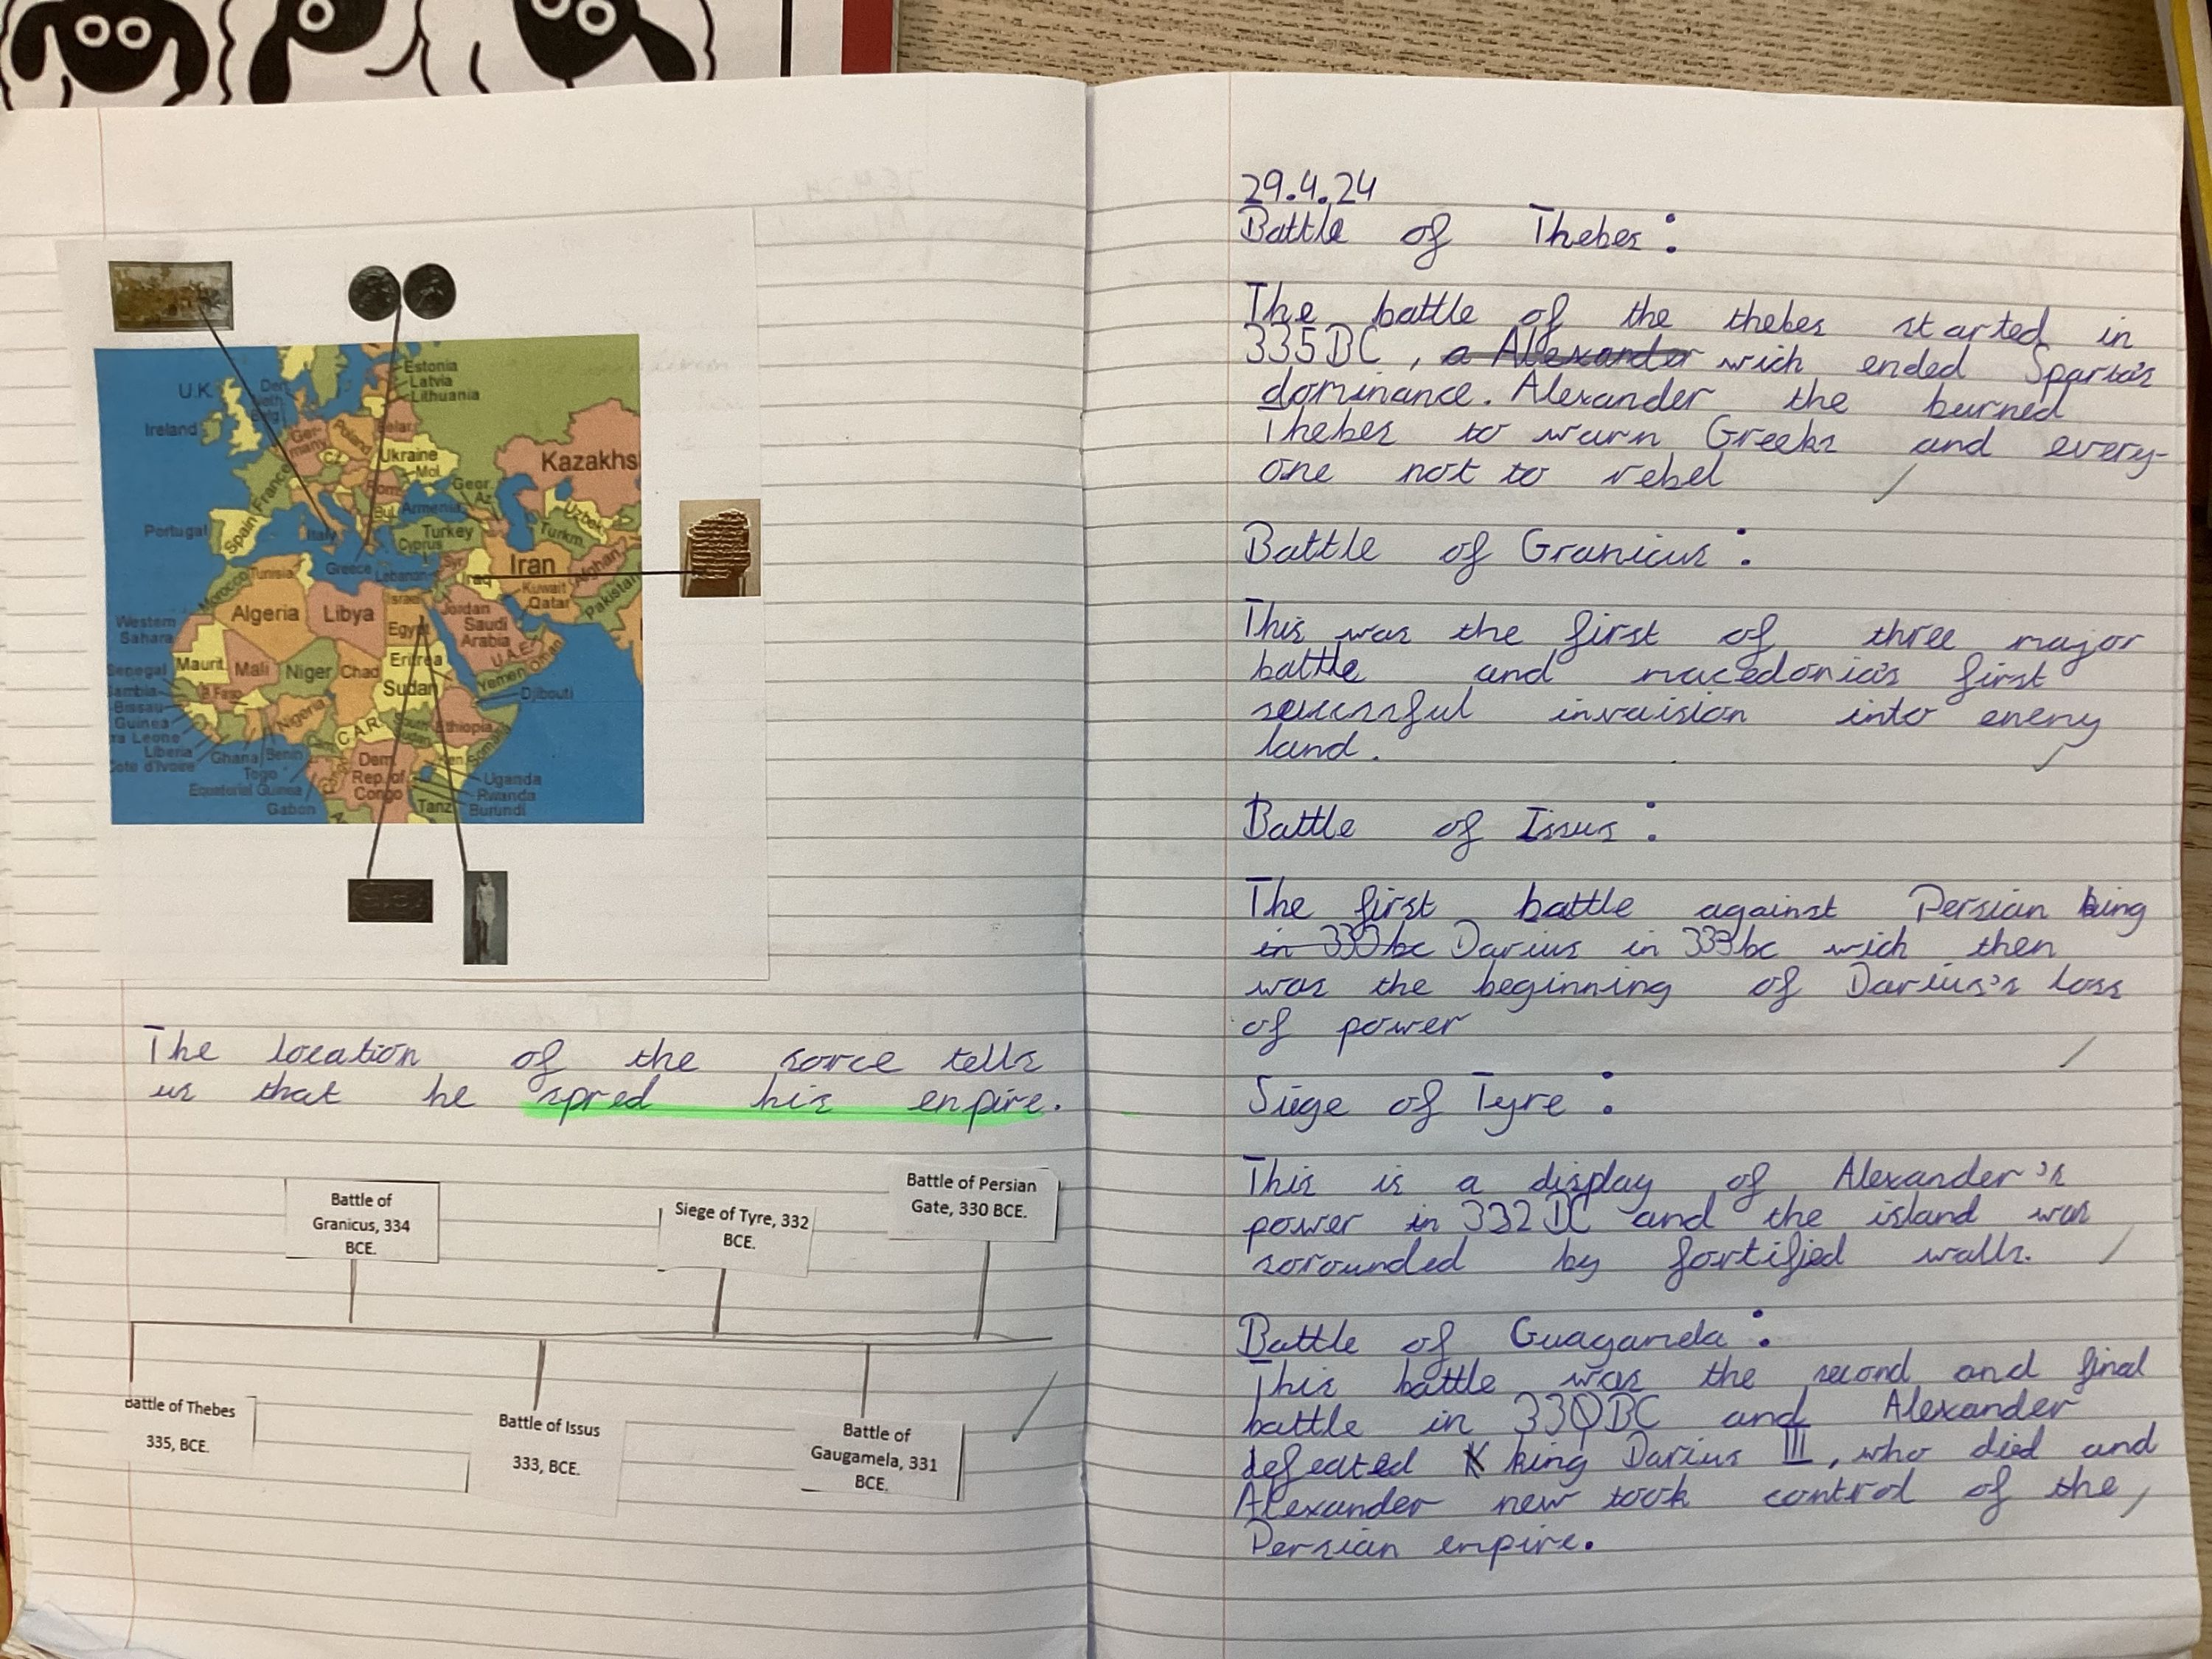 U.K.
Ireland
Den
Neth
Belg
Ger-
many
Poland
Estonia
Latvia
Lithuania
Belar
Ukraine
Mol
Rom
Bul
France
Spain
Portugal
Italy
Greece
Turkey
Cyprus
Armenia
Geor
Az
Kazakhs
Uzbek
Turkm.
Afghan.
Pakistan
Iran
Iraq
Syr
Lebanon
Israel
Jordan
Kuwait
Qatar
Saudi
Arabia
U.A.E.
Oman
Yemen
Morocco
Tunisia
Algeria
Libya
Egypt
Western
Sahara
Maurit.
Mali
Niger
Chad
Eritrea
Sudan
Djibouti
Senegal
ambia
Bissau
Guinea
ra Leone
Liberia
Cote d'Ivoire
B.Faso
Ghana
Togo
Benin
Nigeria
Equatorial Guinea
Gabon
C.A.R.
South
Sudan
Ethiopia
Somalia
Dem.
Rep. of
Congo
Ken
Uganda
Rwanda
Burundi
Tanz
The location of the sorce tells
us that he spred his enpire.
Battle of
Granicus, 334
BCE.
Siege of Tyre, 332
BCE.
Battle of Persian
Gate, 330 BCE.
Battle of Thebes
335, BCE.
Battle of Issus
333, BCE.
Battle of
Gaugamela, 331
BCE.
29.4.24
Battle of Thebes:
The battle of the thebes started in
335BC, a Alexander wich ended Sparta's
dominance. Alexander the burned
Thebes to warn Greeks and every-
one not to rebel
Battle of Granicus:
This was the first of three major
battle and macedonia's first
sucessful invaision into enemy
land.
Battle of Issus:
The first battle against Persian king
in 330bc Darius in 333bc wich then
was the beginning of Darius's loss
of power
Siege of Tyre:
This is a display of Alexander's
power in 332BC and the island was
sorounded by fortified walls.
Battle of Guagamela:
This battle was the second and final
battle in 330BC and Alexander
defeated K king Darius III, who died and
Alexander new took control of the
Persian empire.